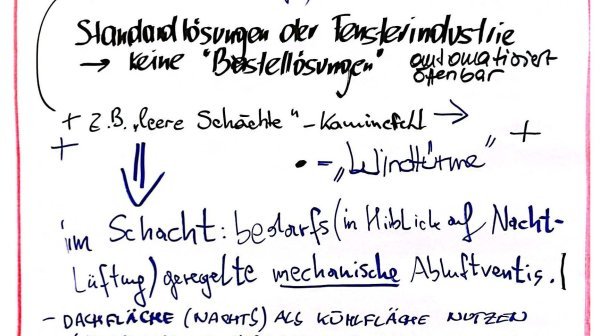 Standardlösungen der Fensterindustrie
→ keine "Bastellösungen" automatisiert
öffenbar
+ z.B. „leere Schächte" - Kamineffekt → +
+ • - „Windtürme"
im Schacht: bedarfs (in Hiblick auf Nacht-
Lüftung) geregelte mechanische Abluftventis.
- DACHFLÄCHE (NACHTS) ALS KÜHLFLÄCHE NUTZEN